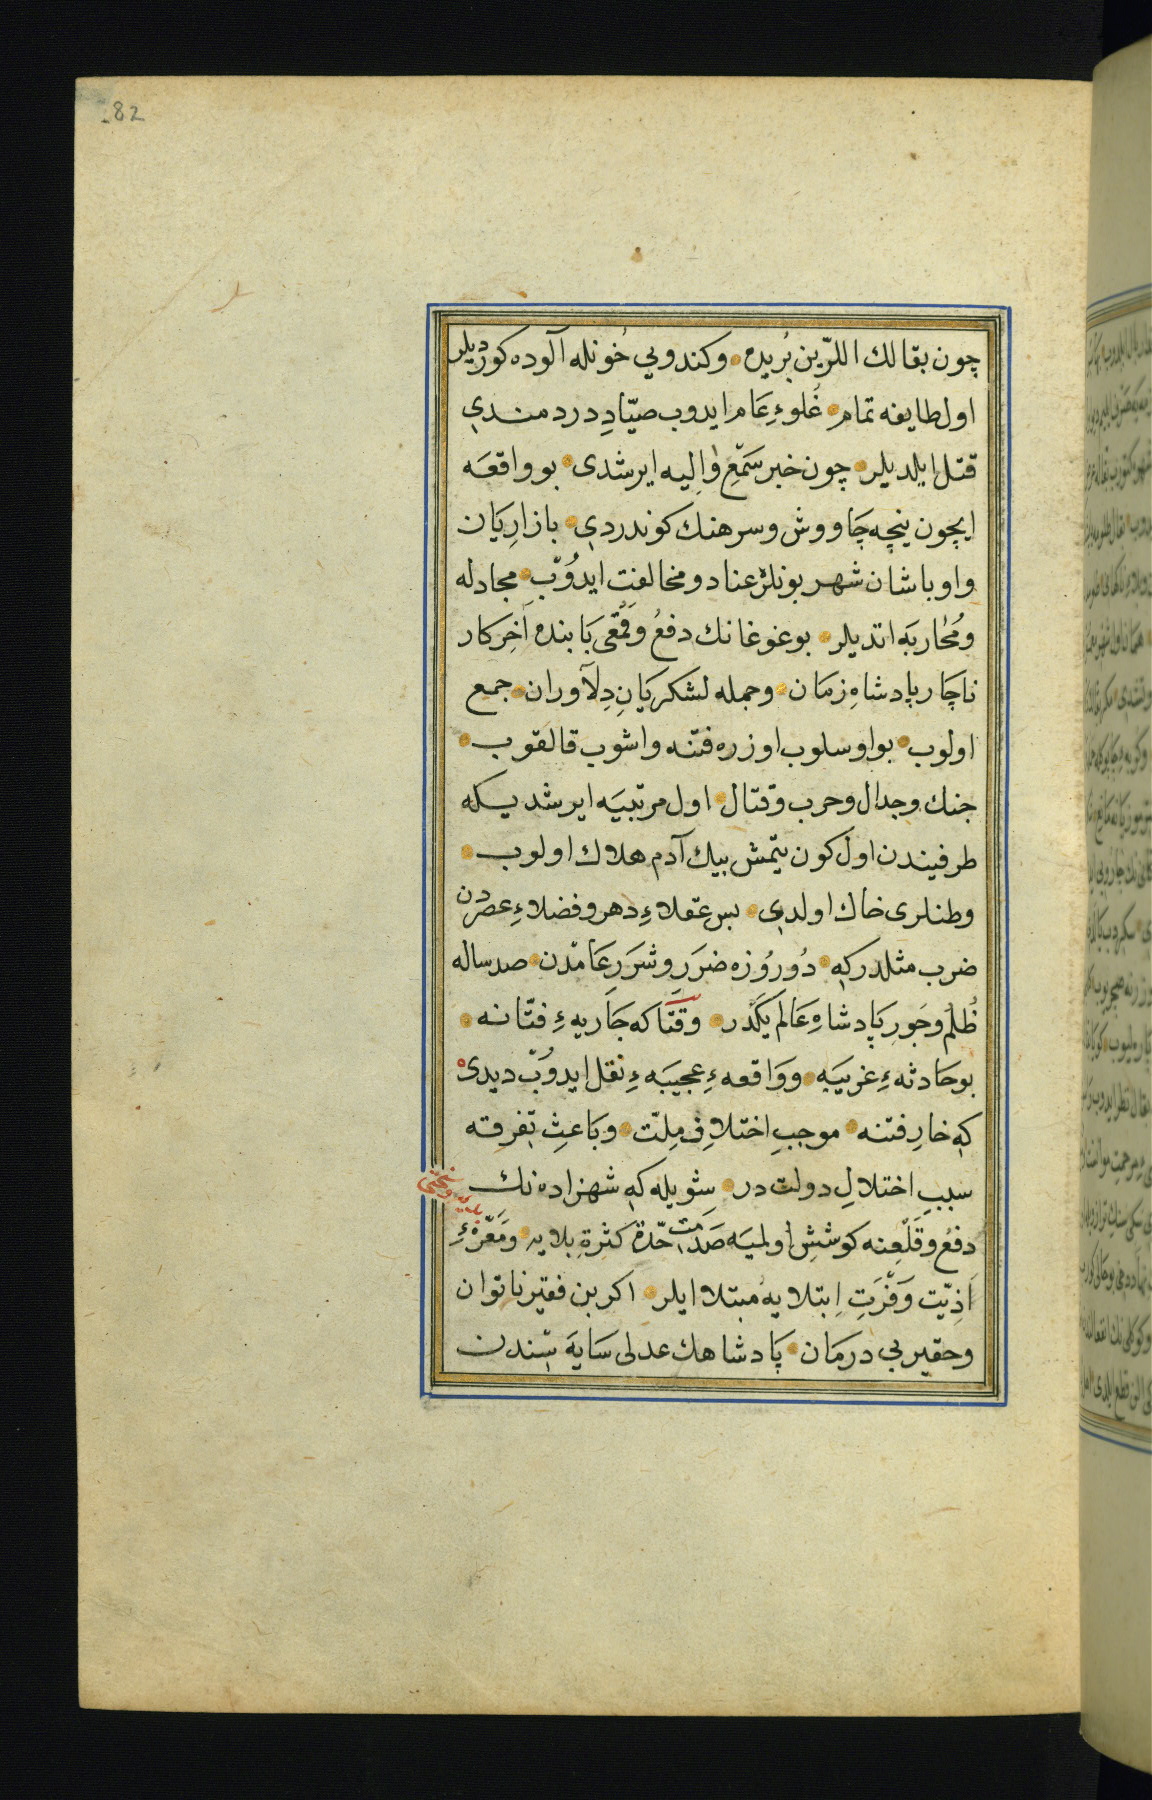 82
چون بقالك اللرين بُريده وكندويي خُونله آلوده كورديلر
اول طايفه تمام غُلوءِ عَام ايدوب صيّادِ دردمندي
قتل ايلديلر چون خبر سَمعِ وٰاليه ايرشدى بو واقعَه
ايچون نيچه چَاووش وسرهنك كوندردي بازارِيَان
واوباشان شهر بونلره عناد و مخالفت ايدُوب مجادله
ومُحٰاربَه اتديلر بو غوغانك دفعُ وقمعى بَابنده آخِر كار
ناچَار پادشاهِ زمَان وجمله لشكريَانِ دِلآوران جمع
اولوب بو اوسلوب اوزره فتنه واشوب قالقوب
جنك وجدال وحرب وقتال اول مرتبَيه ايرشديكه
طرفيندن اول كون يتمش بيك آدم هلاك اولوب
وطنلرى خاك اولدي بس عقلاءِ دهر وفضلاءِ عصردن
ضرب مثلدر كه دُوروُزه ضرَر وشرَرِ عَامّدن صد ساله
ظُلم وجَورِ پَادشاهِ عَالم يكدر وقتَاكه جَاريهءِ فتّانه
بو حَادثهءِ غريبَه ووَاقعهءِ عجيبَهءِ نقل ايدوُب ديدى
كه خارِ فتنه موجبِ اختلافِ مِلّت وبَاعثِ تفرقه
سببِ اختلالِ دولت در شويله كه شهزاده نك
دفعُ وقَلْعنه كوششِ اولميَه صَدمت حدّة كثرةِ بلايه ومَعّرةءِ
اَذيّت وَفرَتِ اِبتلايه مبتلا ايلر اكر بن فقير ناتوان
وحقير بى درمَان پَادشاهك عدلى سَايَه سندن